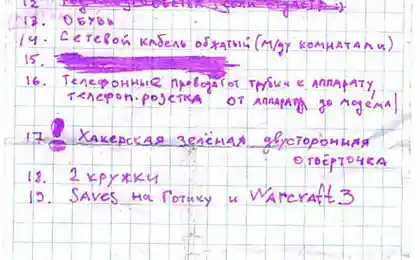 12.
13. ОБУВЬ
14. Сетевой кабель обжатый (м/ду комнатами)
15.
16. Телефонные провода (от трубки к аппарату,
телефон. розетка от аппарата до модема)
17! Хакерская зелёная двусторонняя
отвёрточка
18. 2 кружки
19. Saves на Готику и Warcraft 3